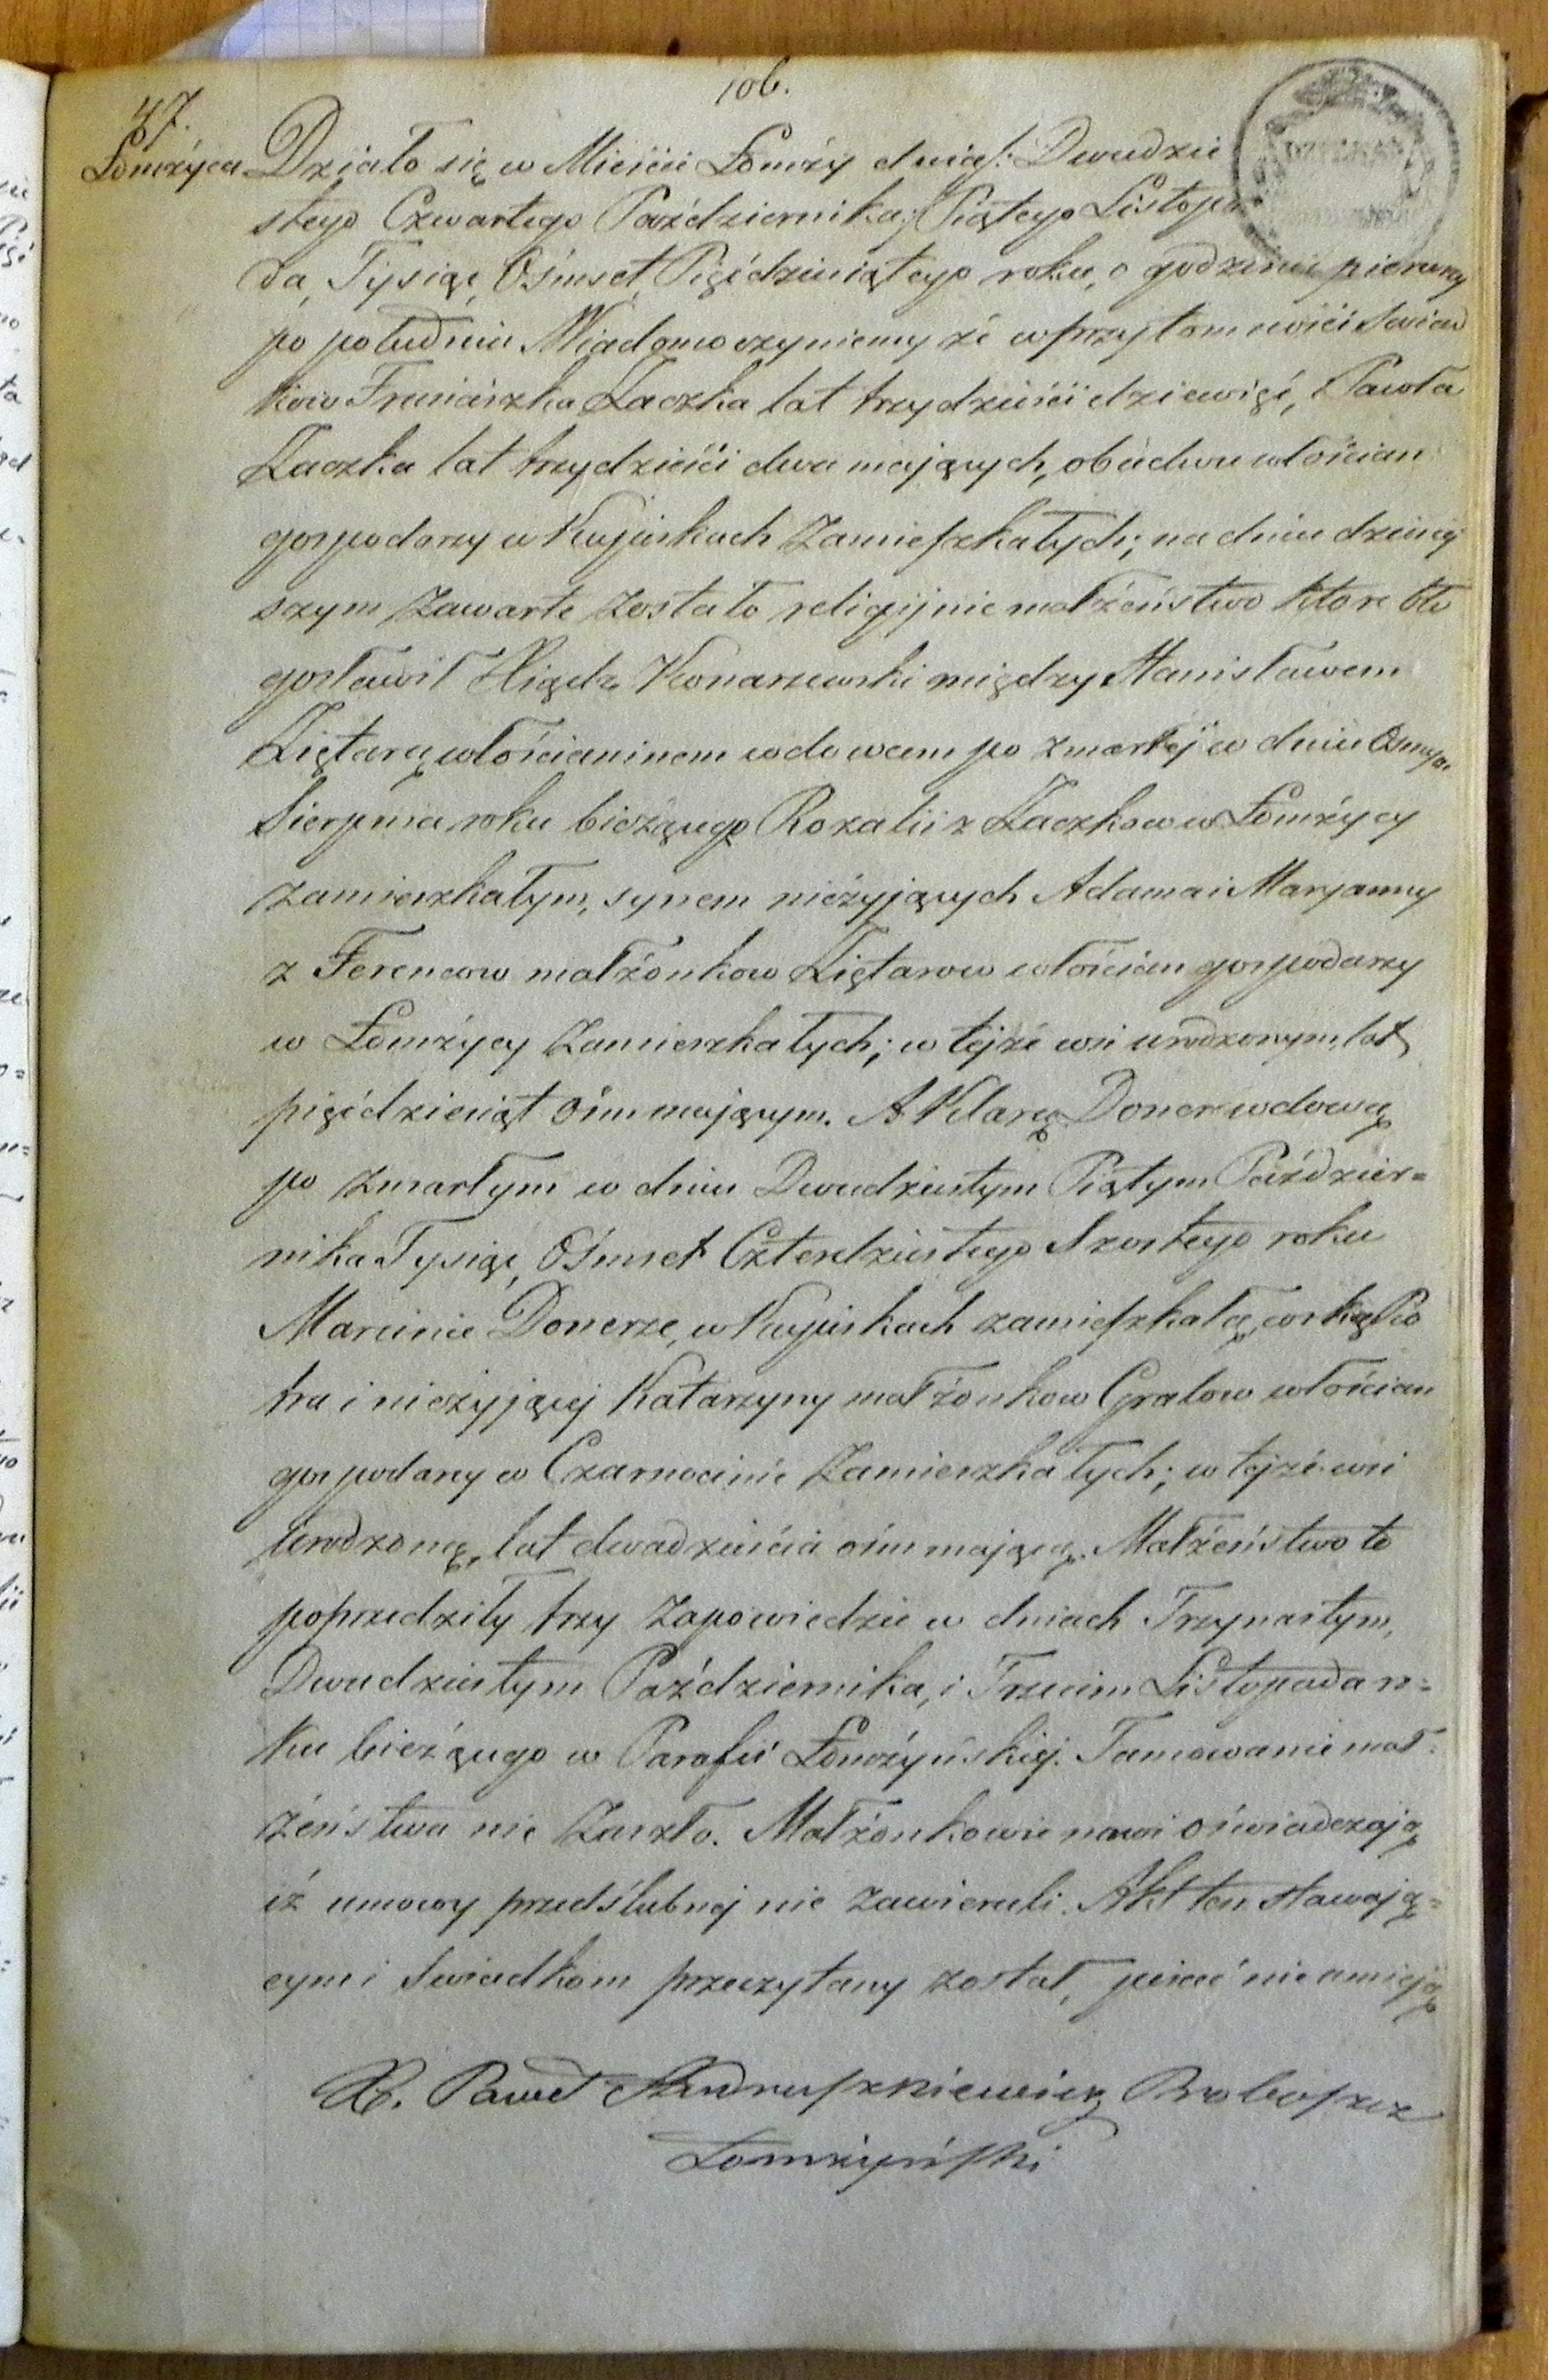 106.
47.
Łomżyca
Działo się w Mieście Łomży dnia /: Dwudzie
stego Czwartego Października :/ Piątego Listopa
da, Tysiąc Ośmset Pięćdziesiątego roku, o godzinie pierwszy
po południu Wiadomo czyniemy że w przytomności świad
ków Franciszka Zaczka lat trzydzieści dziewięć, i Pawła
Zaczka lat trzydzieści dwa mających, obudwu włościan
gospodarzy w Kupiskach Zamieszkałych; na dniu dzisiej
szym zawarte zostało religijnie małżeństwo które bło
gosławił Xiądz Konarzewski między Stanisławem
Ziętarą włościaninem wdowcem po zmarłej w dniu Osmym
Sierpnia roku bieżącego Rozalii z Zaczkow w Łomżycy
zamieszkałym, synem nieżyjących Adama i Maryanny
z Ferencow małżonkow Ziętarow włościan gospodarzy
w Łomżycy Zamieszkałych; w tejże wsi urodzonym, lat
pięćdziesiąt ośm mającym. A Klarą Doner wdową
po zmarłym w dniu Dwudziestym Piątym Paździer=
nika Tysiąc Ośmset Czterdziestego Szostego roku
Marcinie Donerze, w Kupiskach zamieszkałą, corką Pio
tra i nieżyjącej Katarzyny małżonkow Gralow włościan
gospodarzy w Czarnocinie Zamieszkałych; w tejże wsi
urodzoną, lat dwadzieścia ośm mającą. Małżeństwo to
poprzedziły trzy zapowiedzie w dniach Trzynastym,
Dwudziestym Października, i Trzecim Listopada ro=
ku bieżącego w Parafii Łomżyńskiej. Tamowanie mał
żeństwa nie zaszło. Małżonkowie nowi oświadczają
iż umowy przedślubnej nie zawierali. Akt ten stawają=
cym i świadkom przeczytany został, pisać nie umieją
X. Paweł Andruszkiewicz Proboszcz
Łomżyński